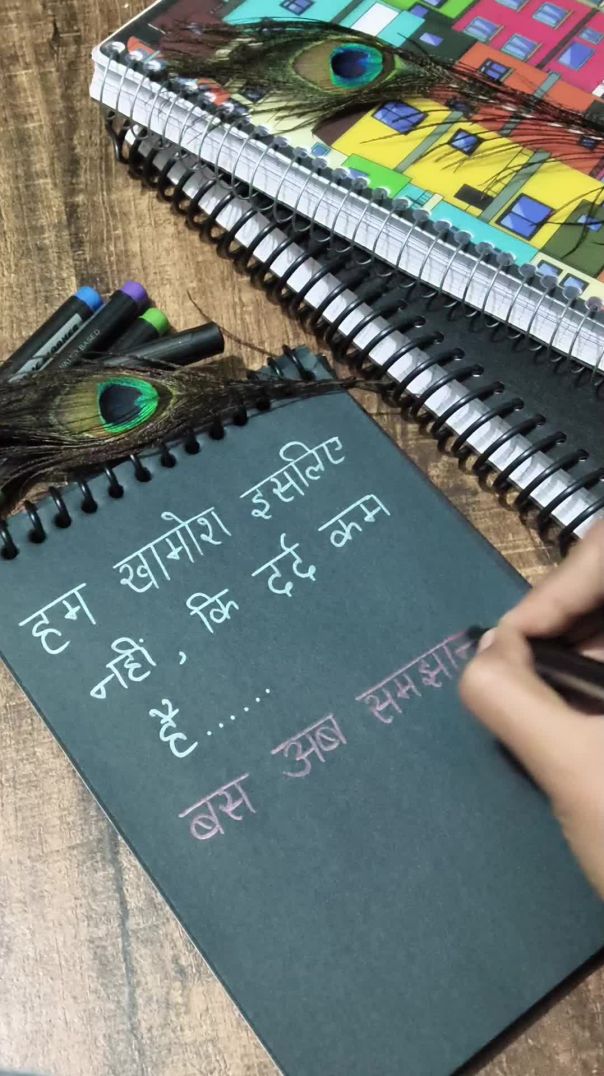 हम खामोश इसलिए
नहीं, कि दर्द कम
है......
बस अब
BASED